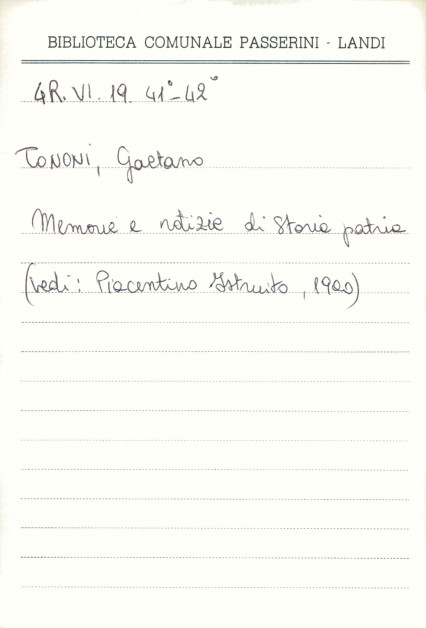 BIBLIOTECA COMUNALE PASSERINI - LANDI
4R. VI. 19. 41°-42°
TONONI, Gaetano
Memorie e notizie di Storia patria
(vedi: Piacentino Istruito, 1900)